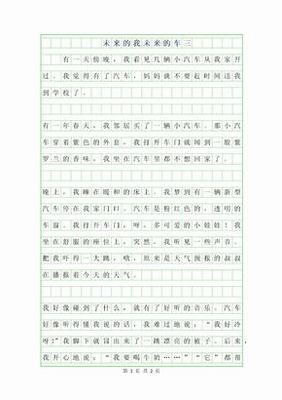 未来的我未来的车三
有一天傍晚，我看见几辆小汽车从我家开
过。我觉得有了汽车，妈妈就不要起时间送我
到学校了。
有一年春天，我邻居买了一辆小汽车。那小汽
车穿着紫色的外套，我打开车门就闻到一股紫
罗兰的香味，我坐在汽车里都不想回家了。
晚上，我睡在暖和的床上。我梦到有一辆新型
汽车停在我家门口。汽车是粉红色的，透明的
车窗。我打开车门，呀，多可爱的小娃娃！我
坐在舒服的座位上，突然，我听见一些声音，
把我吓得一大跳，哦，原来是天气预报的叔叔
在播报着今天的天气。
我好像碰到了什么，就有了好听的音乐。汽车
好像听得懂我说的话，我难过地说：“我好冷
呀！”我脚下就冒出来了一跳漂亮的被子。后来，
我开心地说：“我要喝牛奶……”“它”都很
第 1 页 共 2 页